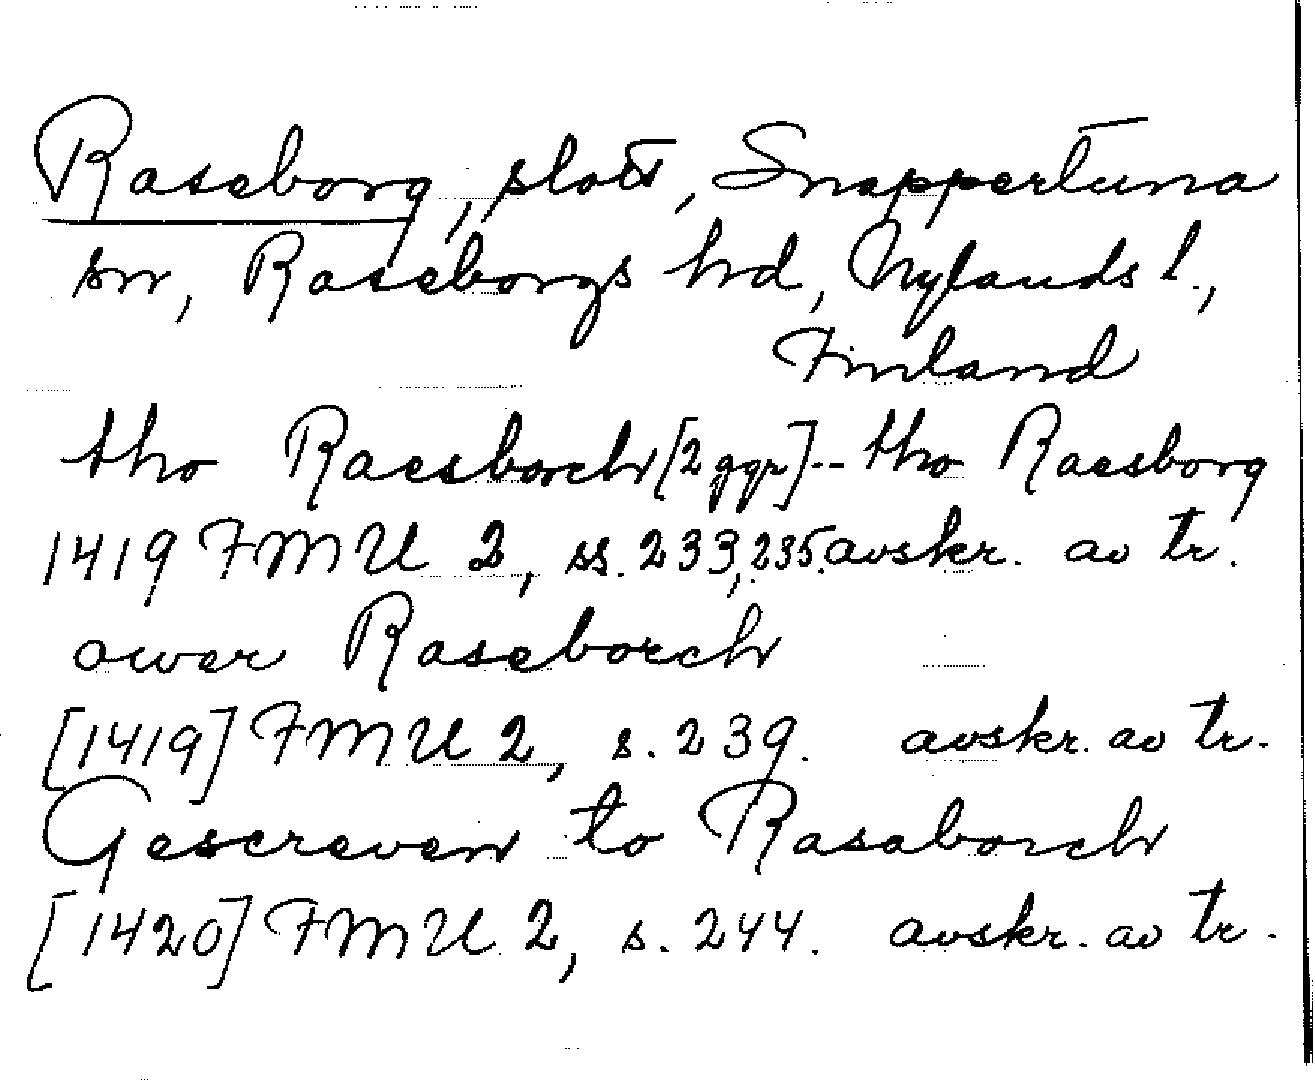 Raseborg, slott, Snappertuna
sn, Raseborgs hd, Nylands l.,
Finland
tho Raesborch [2 ggr] -- tho Raesborg
1419 FMU 2, ss. 233, 235. avskr. av tr.
ower Raseborch
[1419] FMU 2, s. 239. avskr. av tr.
Gescreven to Rasaborch
[1420] FMU 2, s. 244. avskr. av tr.